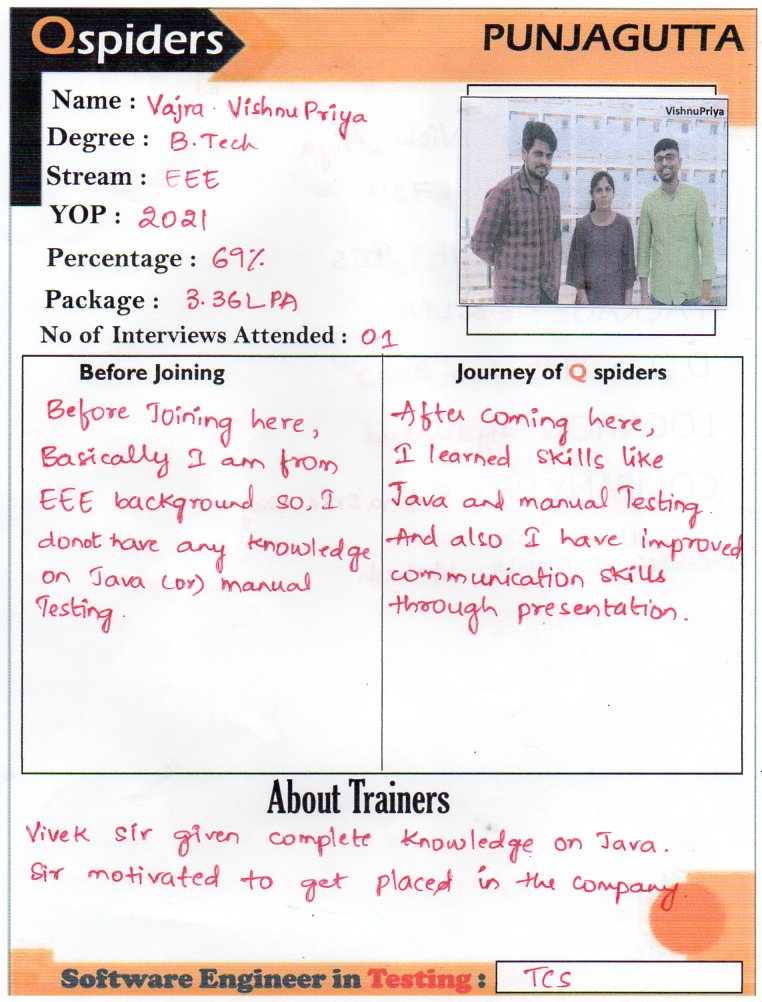 Qspiders
PUNJAGUTTA
Name : Vajra. VishnuPriya
VishnuPriya
Degree : B.Tech
Stream : EEE
YOP : 2021
Percentage : 69%
Package : 3.36LPA
No of Interviews Attended : 01
Before Joining
Before Joining here,
Basically I am from
EEE background so, I
donot have any knowledge
on Java (or) manual
Testing.
Journey of Q spiders
After coming here,
I learned skills like
Java and manual Testing.
And also I have improved
communication skills
through presentation.
About Trainers
Vivek sir given complete knowledge on Java.
Sir motivated to get placed in the company.
Software Engineer in Testing : TCS